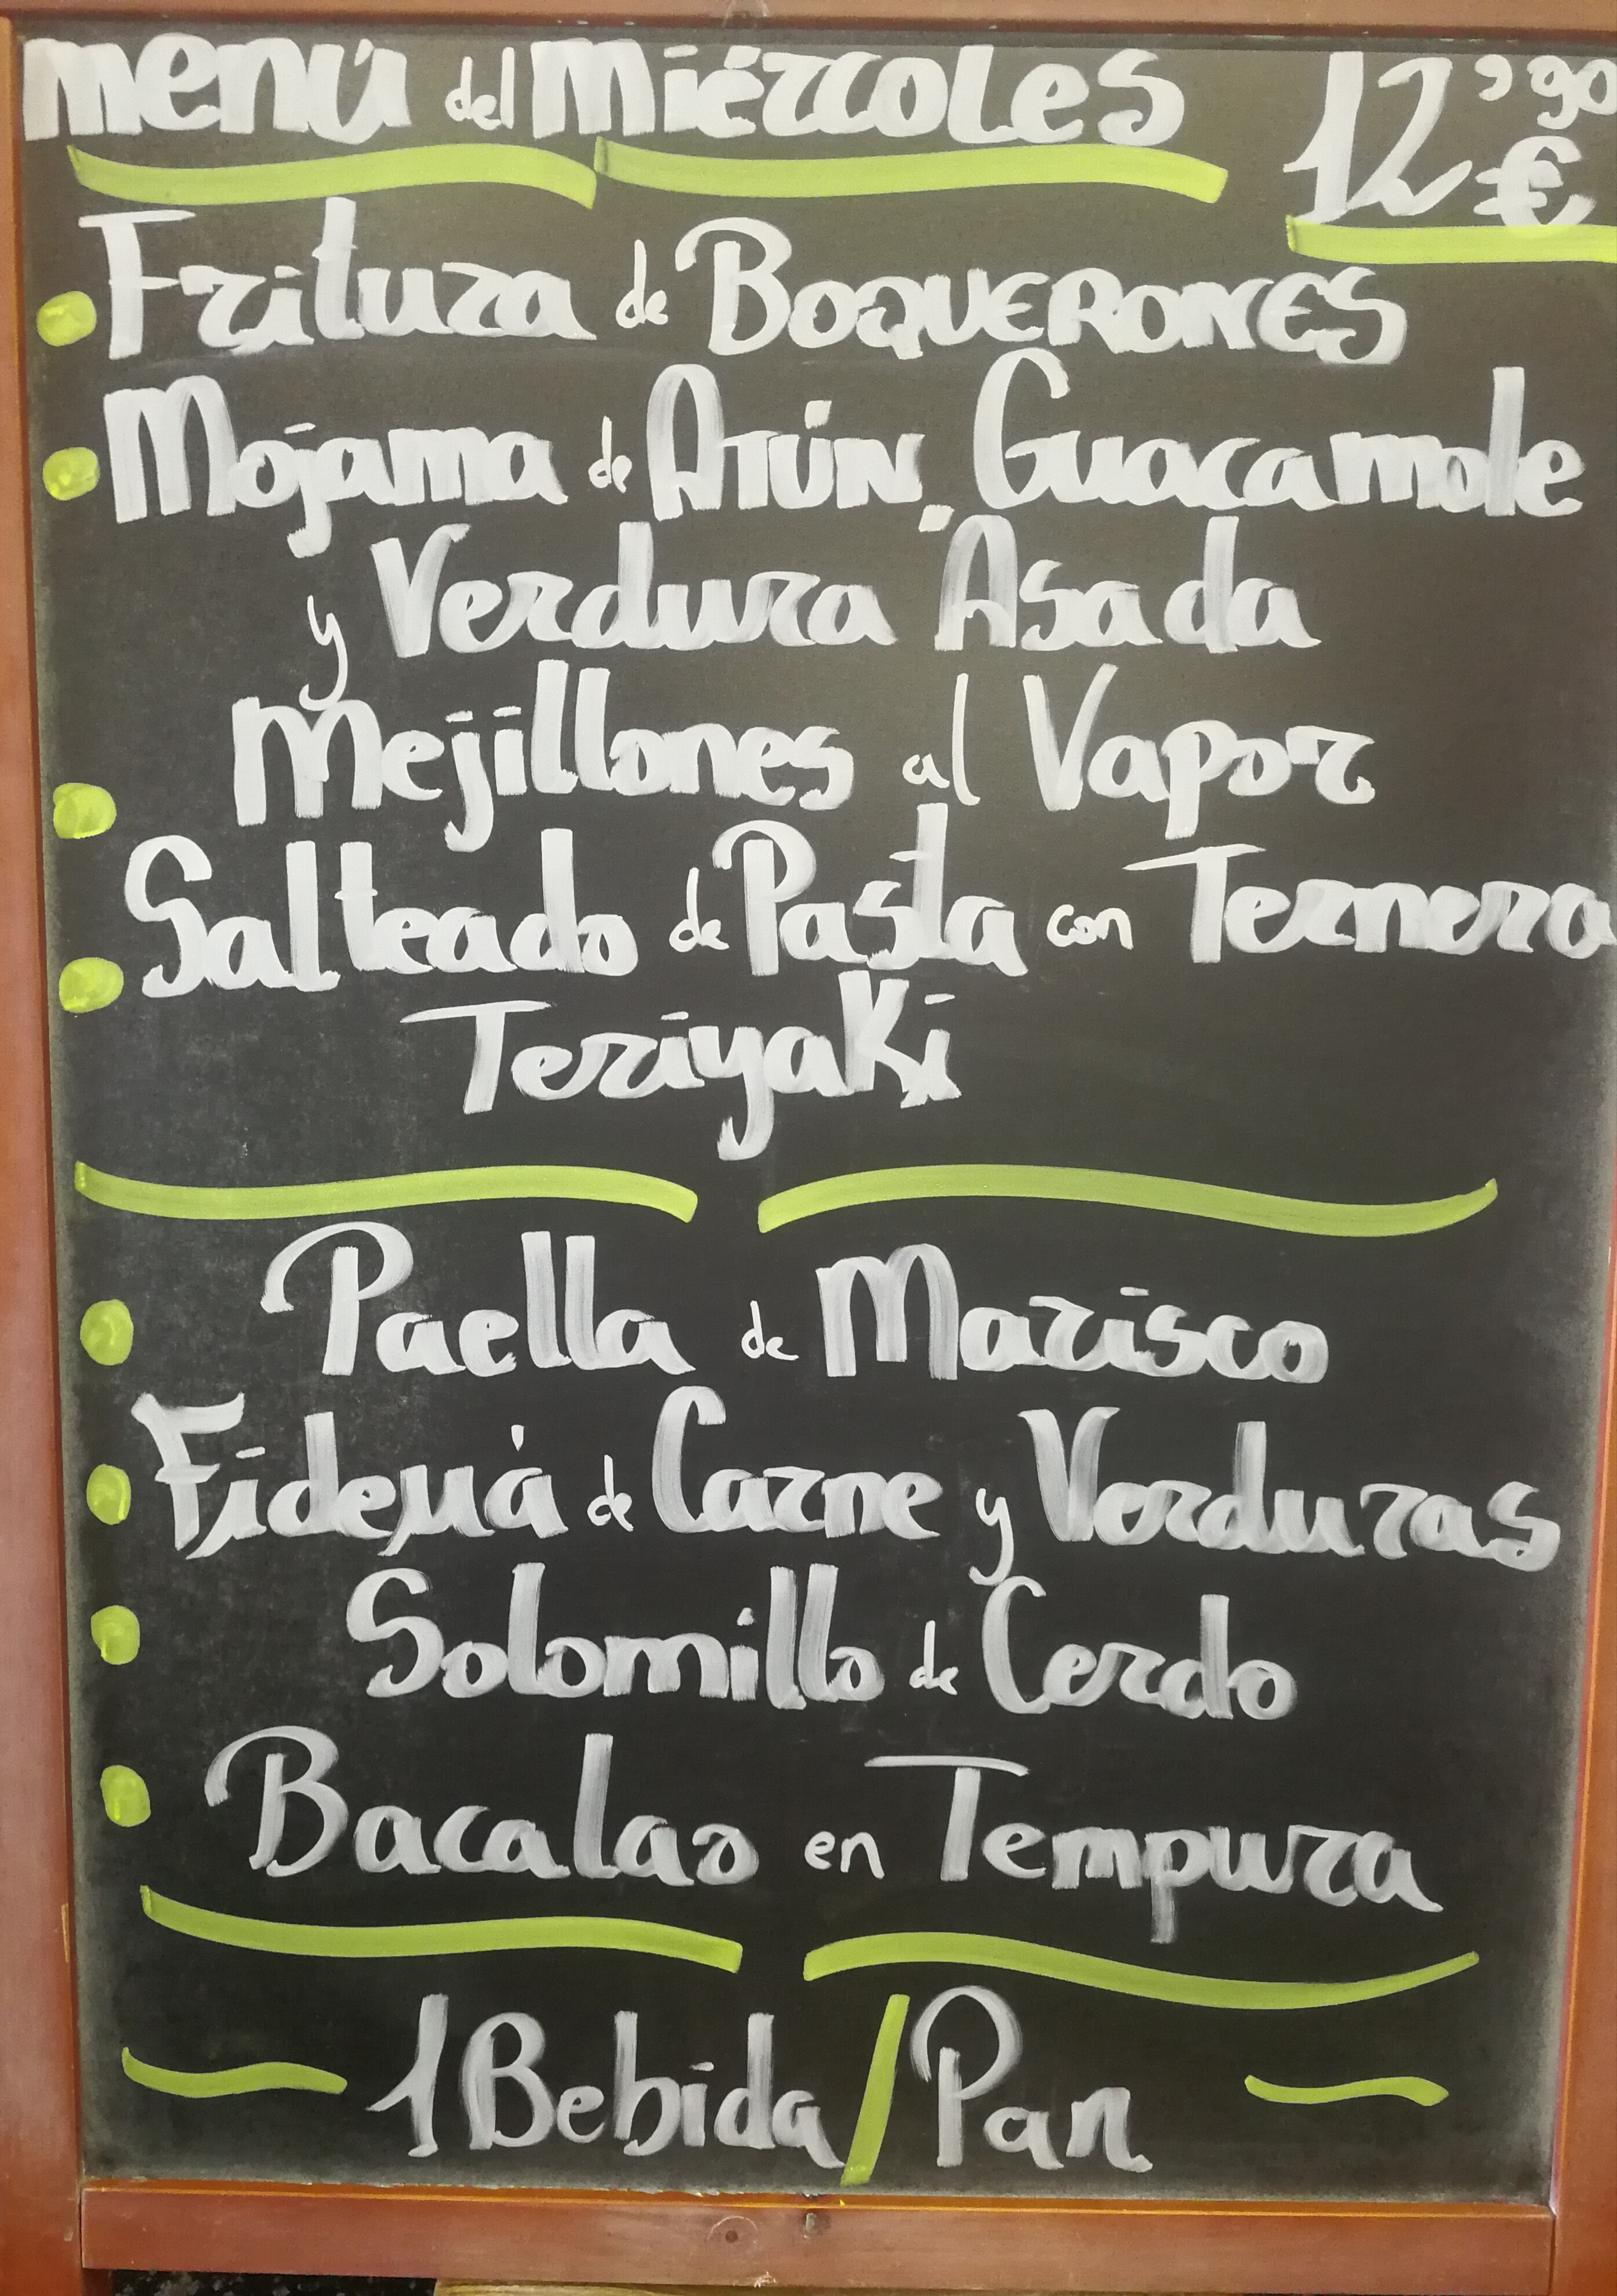 menú del Miércoles 12'90 €
Fritura de BOQUERONES
Mojama de ATÚN, Guacamole
y Verdura Asada
Mejillones al Vapor
Salteado de Pasta con Ternera
Teriyaki
Paella de Marisco
Fideuá de Carne y Verduras
Solomillo de Cerdo
Bacalao en Tempura
1 Bebida / Pan